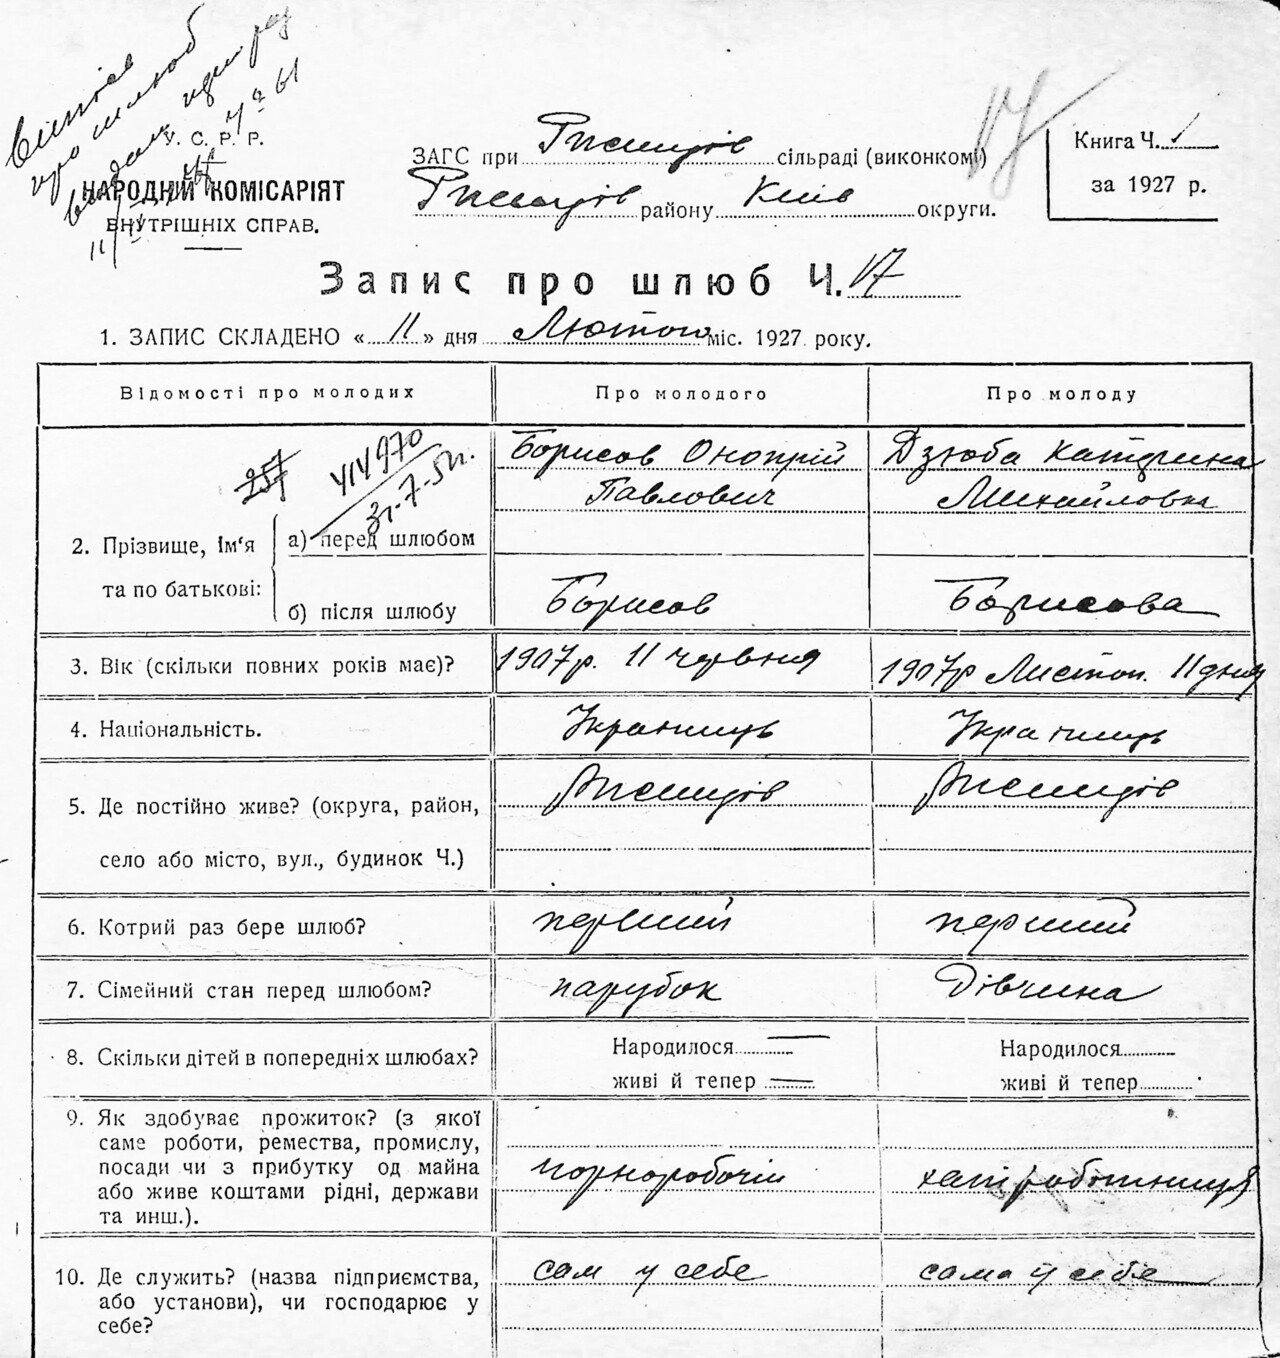 Витяг
про шлюб
видали один раз
У. С. Р. Р.
НАРОДНІЙ КОМІСАРІЯТ
ВНУТРІШНІХ СПРАВ.
ЗАГС при Ржищів сільраді (виконкомі)
Ржищів району Київ округи.
17
Книга Ч. 1
за 1927 р.
Запис про шлюб Ч. 17
1. ЗАПИС СКЛАДЕНО « 11 » дня Лютого міс. 1927 року.
Відомості про молодих Про молодого Про молоду
257 414970
31-7-51
2. Прізвище, Ім'я та по батькові:
а) перед шлюбом
Борисов Оноприй Павлович
Дзюба Катерина Михайловна
б) після шлюбу
Борисов Борисова
3. Вік (скільки повних років має)? 1907р. 11 червня 1907р Листоп. 11 дня
4. Національність. Українець Українець
5. Де постійно живе? (округа, район, Ржищів Ржищів
село або місто, вул., будинок Ч.)
6. Котрий раз бере шлюб? перший перший
7. Сімейний стан перед шлюбом? парубок Дівчина
8. Скільки дітей в попередніх шлюбах? Народилося — Народилося
живі й тепер — живі й тепер
9. Як здобуває прожиток? (з якої
саме роботи, ремества, промислу,
посади чи з прибутку од майна чорноробочий хатн робітниця
або живе коштами рідні, держави
та инш.).
10. Де служить? (назва підприємства, сам у себе сама у себе
або установи), чи господарює у
себе?